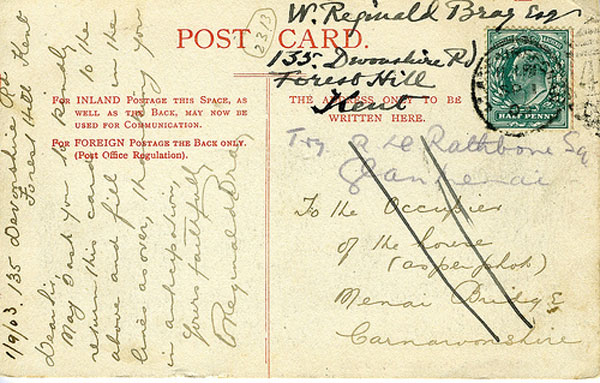 POST CARD.
2313
W. Reginald Bray Esq
135. Devonshire Rd
Forest Hill
Kent
HALF PENNY
FOR INLAND POSTAGE THIS SPACE, AS
WELL AS THE BACK, MAY NOW BE
USED FOR COMMUNICATION.
FOR FOREIGN POSTAGE THE BACK ONLY.
(Post Office Regulation).
THE ADDRESS ONLY TO BE
WRITTEN HERE.
Try R Rathbone Esq
Glan menai
To the Occupier
of the house
(as per phot)
Menai Bridge
Carnarvonshire
1/9/03. 135 Devonshire Rd
Forest Hill Kent
Dear Sir,
May I ask you to kindly
return this card to the
above and fill in the
lines as over, thanking you
in anticipation,
Yours faithfully
W Reginald Bray